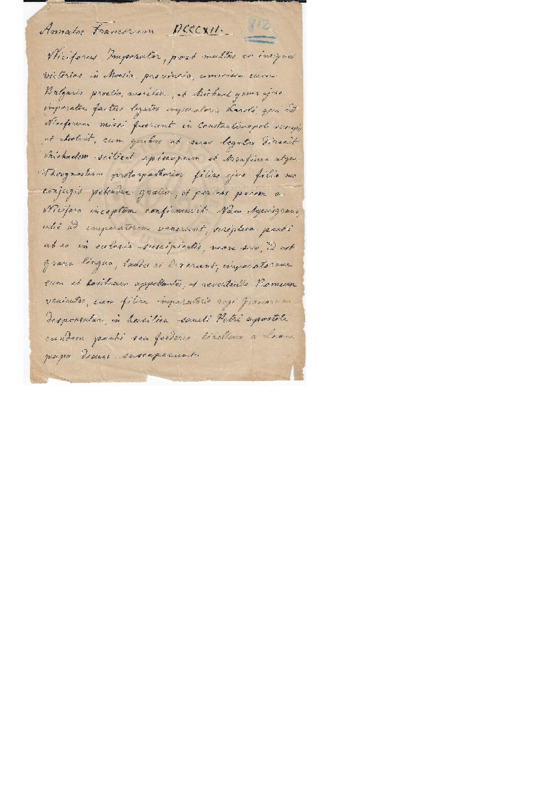 Annales Francorum DCCCXII. 812
Niciforus Imperator, post multas et insignes
victorias in Moesia provincia, commisso cum
Bulgaris proelio, moritur, et Michael gener ejus
imperator factus legatos imperatoris Karoli qui ad
Niciforum missi fuerant in Constantinopoli suscepit
et absolvit, cum quibus et suos legatos direxit
Michaelem scilicet episcopum et
Theognostum filius ejus filio suo
conjugio petendam gratia, et per eos pacem a
Niciforo inceptam confirmavit. Nam Aquisgrani
ubi ad imperatorem venerunt, scriptum pacti
ab eo in ecclesia suscipientes, more suo, id est
graeca lingua, laudes ei dixerunt, imperatorem
eum et basileum appellantes, et revertendo Romam
venientes, cum filia imperatoris regi
desponsatur, in basilica sancti Petri apostoli
eundem pacti seu foederis libellum a Leone
papa denuo susceperunt.